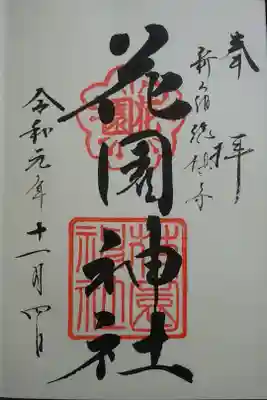 奉拝
新宿総鎮守
花園神社
令和元年十一月四日